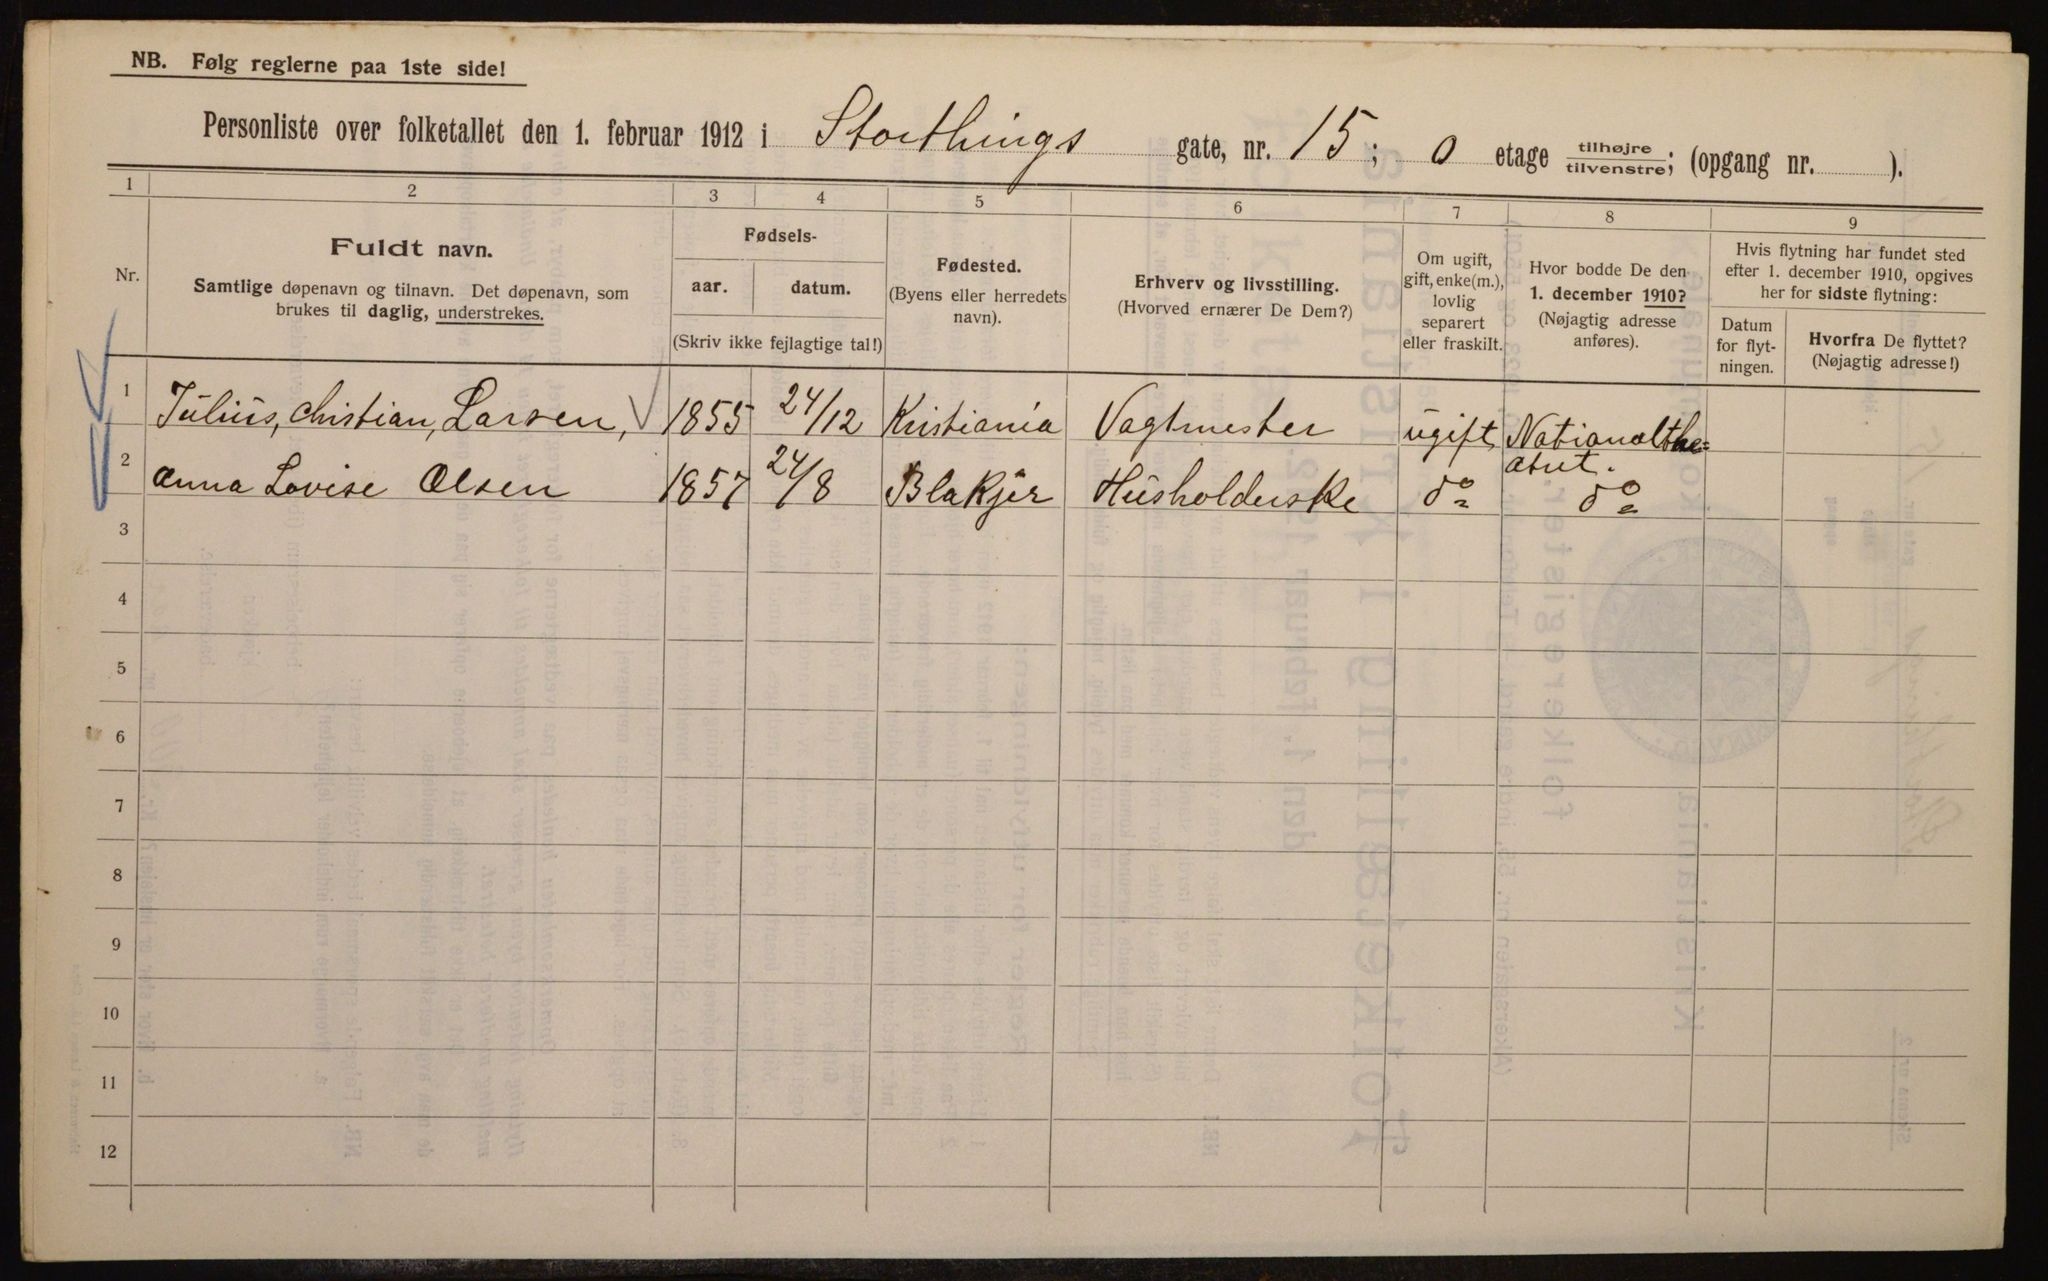 NB. Følg reglerne paa 1ste side!
Personliste over folketallet den 1. februar 1912 i Storthings gate, nr. 15; 0 etage tilhøjre/tilvenstre; (opgang nr. ).
1 2 3 4 5 6 7 8 9
Nr.
Fuldt navn.
Samtlige døpenavn og tilnavn. Det døpenavn, som
brukes til daglig, understrekes.
Fødsels-
aar. datum.
(Skriv ikke fejlagtige tal!)
Fødested.
(Byens eller herredets
navn).
Erhverv og livsstilling.
(Hvorved ernærer De Dem?)
Om ugift,
gift, enke(m.),
lovlig
separert
eller fraskilt.
Hvor bodde De den
1. december 1910?
(Nøjagtig adresse
anføres).
Hvis flytning har fundet sted
efter 1. december 1910, opgives
her for sidste flytning:
Datum
for flyt-
ningen.
Hvorfra De flyttet?
(Nøjagtig adresse!)
1 Julius, Christian, Larsen, 1855 24/12 Kristiania Vagtmester ugift Nationalthe=
atret.
2 Anna Lovise Olsen 1857 24/8 Blakjer Husholderske do do
3
4
5
6
7
8
9
10
11
12